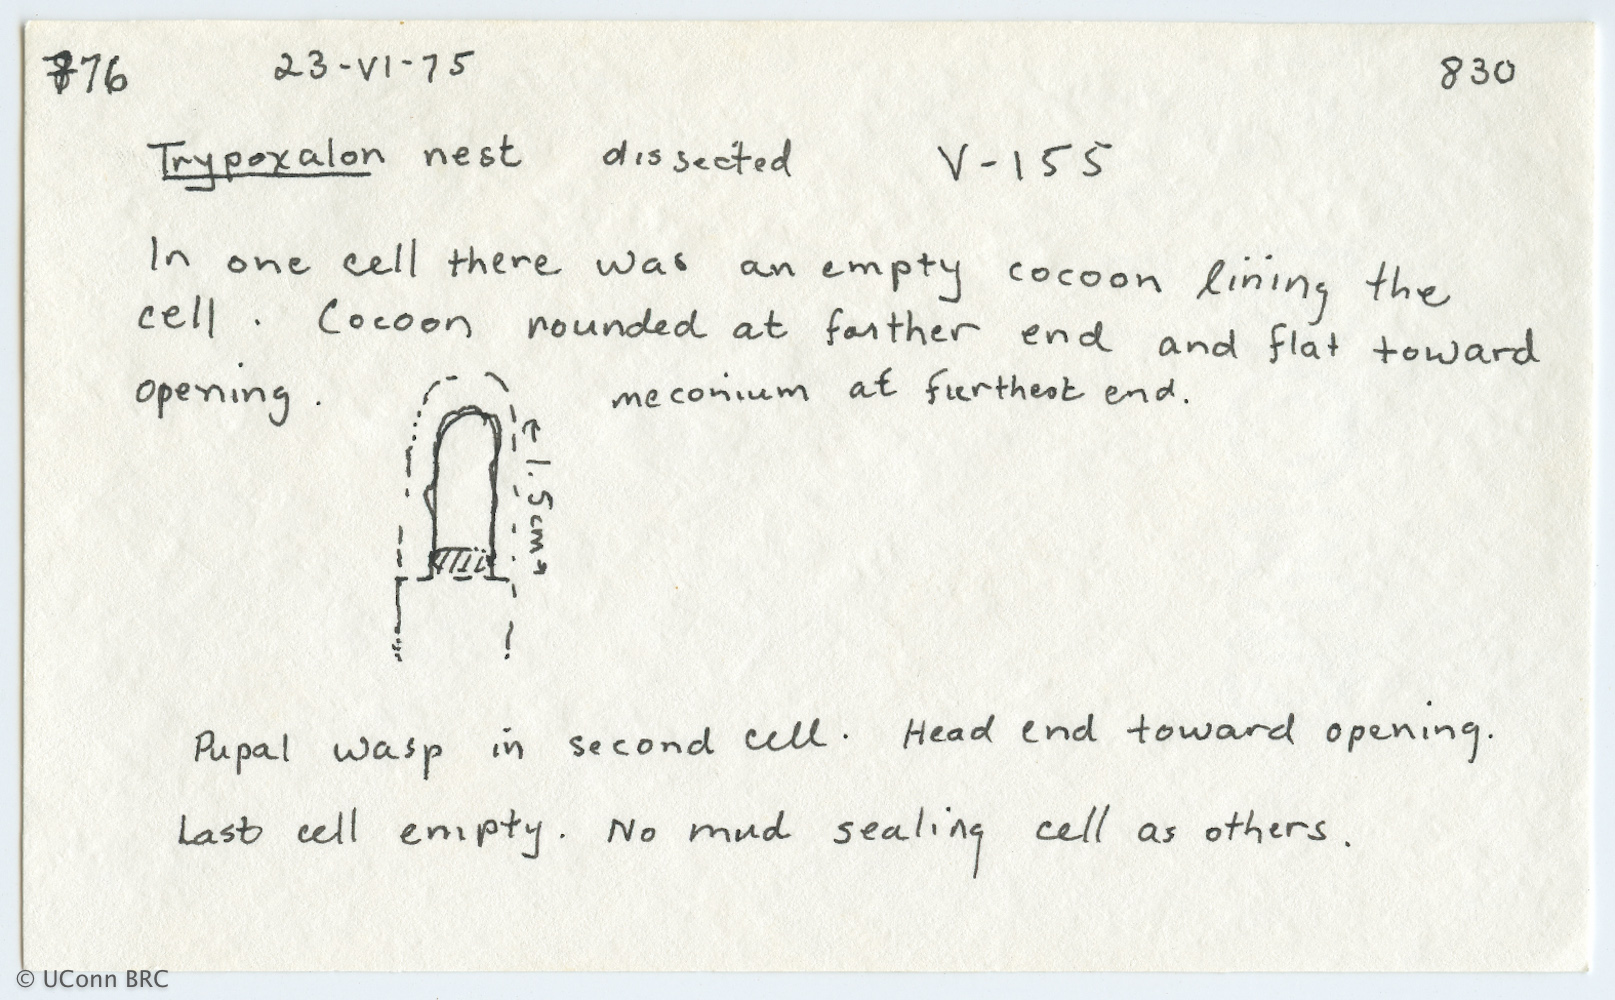 876 23-VI-75 830
Trypoxalon nest dissected V-155
In one cell there was an empty cocoon lining the
cell. Cocoon rounded at farther end and flat toward
opening. meconium at furthest end.
1.5cm
Pupal wasp in second cell. Head end toward opening.
Last cell empty. No mud sealing cell as others.
© UConn BRC